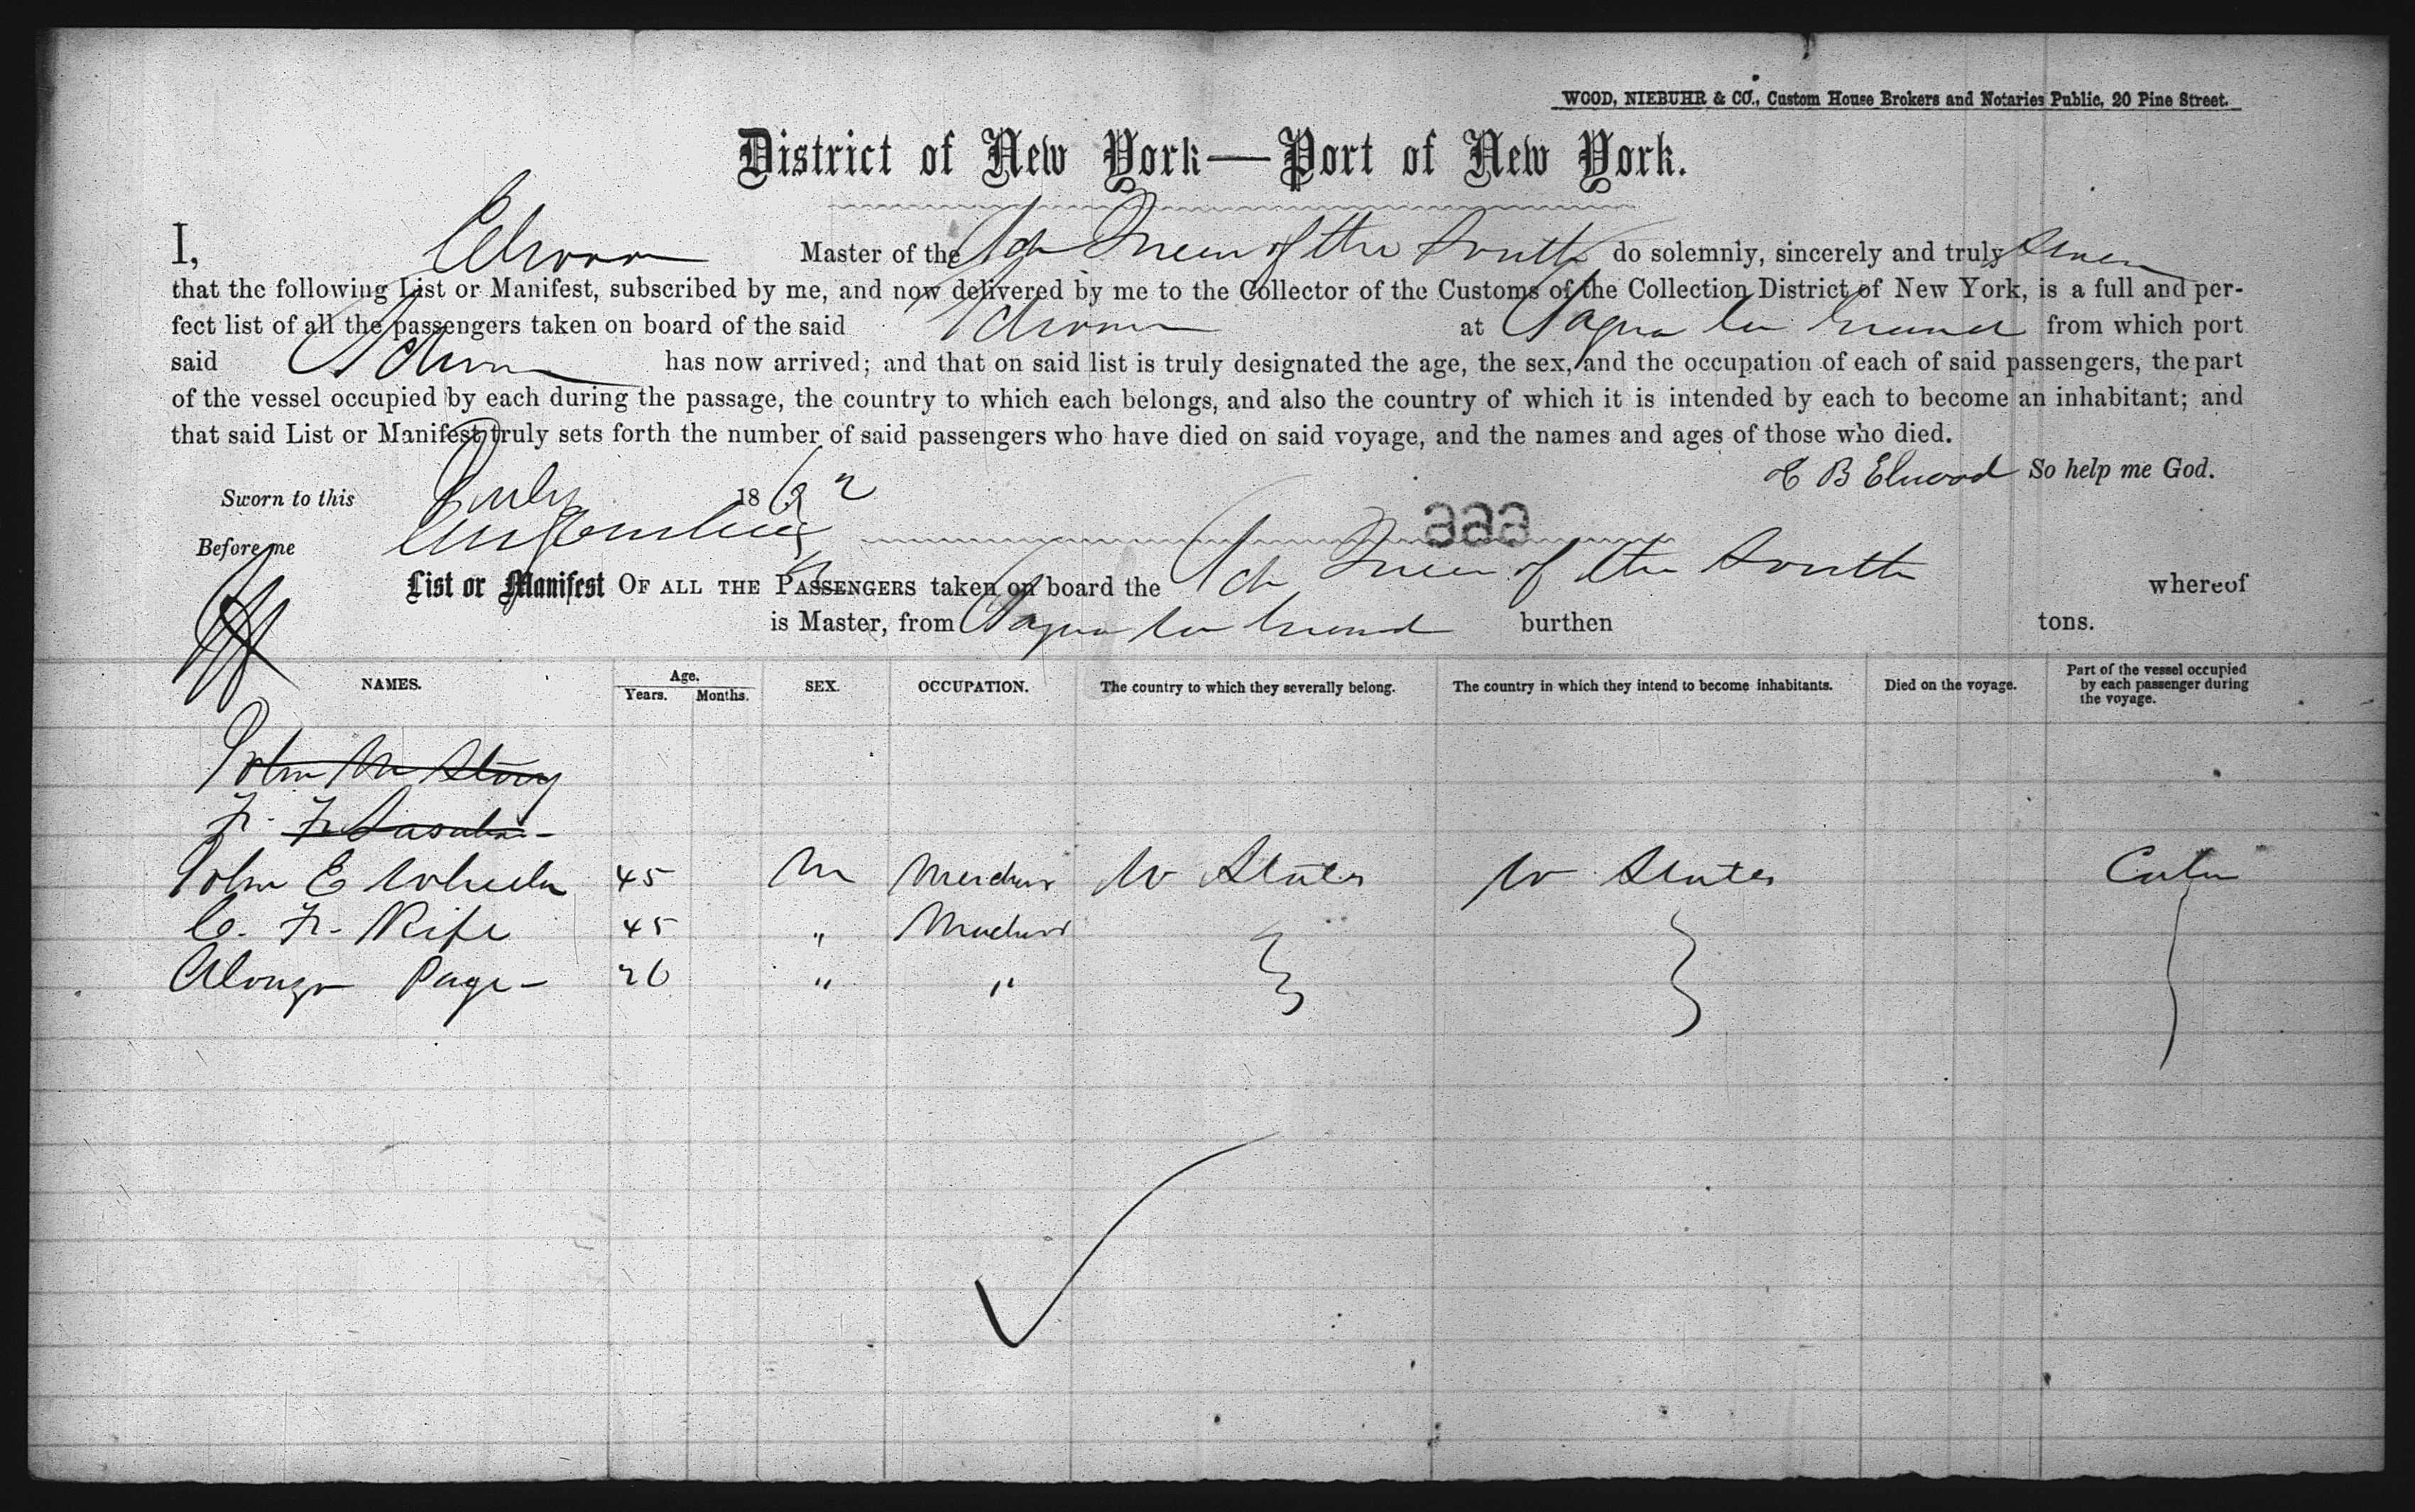 WOOD, NIEBUHR & CO., Custom House Brokers and Notaries Public, 20 Pine Street.
District of New York—Port of New York.
I, Elwood Master of the Sch Queen of the South do solemnly, sincerely and truly swear
that the following List or Manifest, subscribed by me, and now delivered by me to the Collector of the Customs of the Collection District of New York, is a full and per-
fect list of all the passengers taken on board of the said Schooner at Sagua la Grand from which port
said Schooner has now arrived; and that on said list is truly designated the age, the sex, and the occupation of each of said passengers, the part
of the vessel occupied by each during the passage, the country to which each belongs, and also the country of which it is intended by each to become an inhabitant; and
that said List or Manifest truly sets forth the number of said passengers who have died on said voyage, and the names and ages of those who died.
E B Elwood So help me God.
Sworn to this July 1862
Before me
666
List or Manifest OF ALL THE PASSENGERS taken on board the Sch Queen of the South whereof
is Master, from Sagua la Grand burthen tons.
NAMES. Age. Years. Months. SEX. OCCUPATION. The country to which they severally belong. The country in which they intend to become inhabitants. Died on the voyage. Part of the vessel occupied by each passenger during the voyage.
John M Story
F. F.
John E Wheeler 45 M U States U States Cabin
C. F. Rife 45 "
Alonzo Page 26 " "